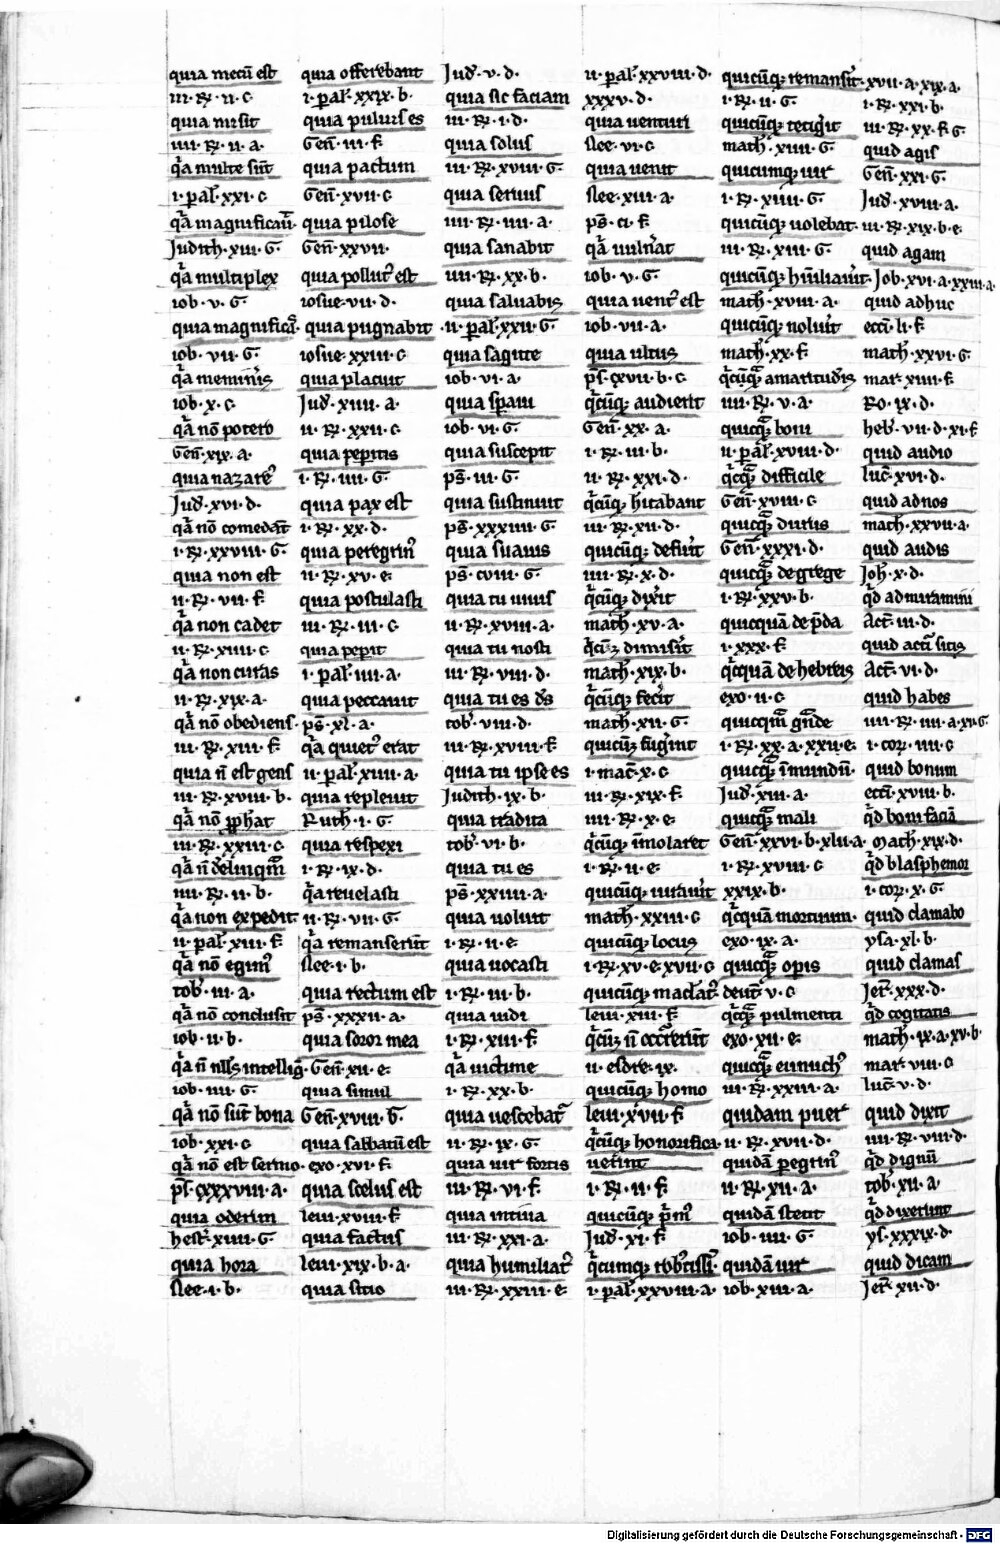 quia mecū est
iii· R· ii· c·
quia misit
iiii· R· ii· a·
q̄a multe sūt
i· paľ· xxi· c
q̄a magnificaū
Judith· xvi· G·
q̄a multiplex
iob· v· G·
quia magnifica
iob· vii· G·
q̄a memin̄is
iob· x· c·
q̄a nō potero
Gen̄· xix· a·
quia nazare
Jud̄· xvi· d·
q̄a nō comedit
i· R· xxviii· G·
quia non est
ii· R· vii· f·
q̄a non cadet
ii· R· xiiii· c
q̄a non curas
ii· R· xix· a·
q̄a nō obediens
iii· R· xiii· f·
quia n̄ est gens
iii· R· xviii· b·
q̄a nō
iii· R· xxiii· c
q̄a n̄ delinqm̄
iiii· R· ii· b·
q̄a non expedit
ii· paľ· xiii· f·
q̄a nō egim
tob· iii· a·
q̄a nō conclusit
iob· ii· b·
q̄a n̄ intellig
iob· iiii· G·
q̄a nō sūt bona
iob· xxi· c
q̄a nō est sermo
ps̄· cxxxviii· a·
quia oderim
hest· xiiii· G·
quia hora
slee· i· b·
quia offerebant
i· paľ· xxix· b·
quia puluis es
Gen̄· iii· f·
quia pactum
Gen̄· xvii· c
quia pilose
Gen̄· xxvii·
quia pollut est
iosue· vii· d·
quia pugnabit
iosue· xxiii· c
quia placuit
Jud̄· xiiii· a·
ii· R· xxii· c
quia peperitis
i· R· iiii· G·
quia pax est
i· R· xx· d·
quia peregrin
ii· R· xv· e·
quia postulasti
iii· R· iii· c
quia peperit
i· paľ· iiii· a·
quia peccauit
ps̄· xl· a·
q̄a quiet erat
ii· paľ· xiiii· a·
quia repleuit
Ruth· i· G·
quia respexi
i· R· ix· d·
q̄a reuelasti
ii· R· vii· G·
q̄a remanserūt
slee· i· b·
quia rectum est
ps̄· xxxii· a·
quia soror mea
Gen̄· xii· e·
quia simul
Gen̄· xviii· G·
quia sabbatū est
exo· xvi· f·
quia scelus est
leui· xviii· f·
quia factus
leui· xix· b· a·
quia sitio
Jud̄· v· d·
quia sic faciam
iii· R· i· d·
quia solus
iii· R· xviii· G·
quia seruus
iiii· R· iiii· a·
quia sanabit
iiii· R· xx· b·
quia saluabis
ii· paľ· xxii· G·
quia sagitte
iob· vi· a·
quia spaui
iob· vi· G·
quia suscepit
ps̄· iii· G·
quia sustinuit
ps̄· xxxiiii· G·
quia suauis
ps̄· cviii· G·
quia tu uiuis
ii· R· xviii· a·
quia tu nosti
iii· R· viii· d·
quia tu es ds̄
tob· viii· d·
iii· R· xviii· f·
quia tu ipse es
Judith· ix· b·
quia tradita
tob· vi· b·
quia tu es
ps̄· xxiiii· a·
quia uoluit
i· R· ii· e·
quia uocasti
i· R· iii· b·
quia uidi
i· R· xiii· f·
q̄a uictime
i· R· xx· b·
quia uescebat
ii· R· ix· G·
quia uir fortis
iii· R· vi· f·
quia intuia
iii· R· xxi· a·
quia humiliat
iii· R· xxiii· e·
ii· paľ· xxviii· d·
xxxv· d·
quia uenturi
slee· vi· c
quia uenit
slee· xiii· a·
ps̄· ci· f·
q̄a uuln̄at
iob· v· G·
quia uent est
iob· vii· a·
quia ultus
ps̄· cxvii· b· c·
q̄cūq audierit
Gen̄· xx· a·
i· R· iii· b·
ii· R· xxi· d·
q̄cūq hitabant
iii· R· xii· d·
quicūq defiuit
iiii· R· x· d·
q̄cūq dixit
math̄· xv· a·
q̄cūq dimisit
math̄· xix· b·
q̄cūq fecit
math̄· xii· G·
quicūq fugint
i· mac̄· x· c
iii· R· xix· f·
iiii· R· x· e·
q̄cūq imolaret
i· R· ii· e·
quicūq iurauit
math̄· xxiii· c
quicūq locus
i· R· xv· e· xvii· c
quicūq mactat
leui· xiii· f·
q̄cūq n̄ occurrerūt
ii· esdre· ix·
quicūq homo
leui· xvii· f·
q̄cūq honorifica
uerint
i· R· ii· f·
quicūq pm̄
Jud̄· xi· f·
q̄cumq robtissi
i· paľ· xxviii· a·
quicūq remansit
i· R· ii· G·
quicūq tetigit
math̄· xiiii· G·
quicumq uir
i· R· xiiii· G·
quicūq uolebat
iii· R· xiii· G·
quicūq humiliauit
math̄· xviii· a·
quicūq noluit
math̄· xx· f·
q̄cūq amaritudis
iiii· R· v· a·
quicq boni
ii· paľ· xviii· d·
q̄cq difficile
Gen̄· xviii· c
quicq durius
Gen̄· xxxi· d·
quicq de grege
i· R· xxv· b·
quicquā de pda
i· xxx· f·
q̄cquā de hebreis
exo· ii· c
quicqm gnde
i· R· xx· a· xxii· e·
quicq imundū
Jud̄· xiii· a·
quicq mali
Gen̄· xxvi· b· xlii· a·
i· R· xviii· c
xxix· b·
q̄cquā mortuum
exo· ix· a·
quicq operis
deut· v· c
q̄cq pulmenti
exo· xii· e·
quicq eunuch
iii· R· xxiii· a·
quidam puer
ii· R· xvii· d·
quidā pegrin
ii· R· xii· a·
quidā stetit
iob· iiii· G·
quidā uir
iob· xiii· a·
xvii· a· xix· a·
i· R· xxi· b·
iii· R· xx· f· G·
quid agis
Gen̄· xxi· G·
Jud̄· xviii· a·
iii· R· xix· b· e·
quid agam
Job· xvi· a· xxiii· a·
quid adhuc
eccī· li· f·
math̄· xxvi· G·
mar· xiiii· f·
Ro· ix· d·
heb· vii· d· xi· f·
quid audio
luc̄· xvi· d·
quid ad nos
math̄· xxvii· a·
quid audis
Joh̄· x· d·
qd admiramini
Act̄· iii· d·
quid acti sitis
Act̄· vi· d·
quid habes
iiii· R· iiii· a· xi· G·
i· cor· iiii· c
quid bonum
eccī· xviii· b·
qd boni faciā
math̄· xix· d·
qd blasphemor
i· cor· x· G·
quid clamabo
ysa· xl· b·
quid clamas
Jer̄· xxx· d·
qd cogitatis
math̄· ix· a· xv· b·
mar· viii· c
luc̄· v· d·
quid dixit
iiii· R· viii· d·
qd dignū
tob· xii· a·
qd dixerunt
ys· xxxix· d·
quid dicam
Jer̄· xii· d·
Digitalisierung gefördert durch die Deutsche Forschungsgemeinschaft · DFG